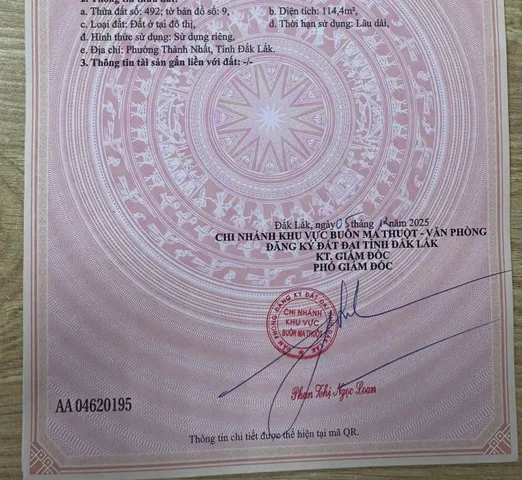 2. Thông tin thửa đất:
a. Thửa đất số: 492; tờ bản đồ số: 9, b. Diện tích: 114,4m²,
c. Loại đất: Đất ở tại đô thị, d. Thời hạn sử dụng: Lâu dài,
đ. Hình thức sử dụng: Sử dụng riêng,
e. Địa chỉ: Phường Thành Nhất, Tỉnh Đắk Lắk.
3. Thông tin tài sản gắn liền với đất: -/-
Đắk Lắk, ngày 05 tháng 12 năm 2025
CHI NHÁNH KHU VỰC BUÔN MA THUỘT - VĂN PHÒNG
ĐĂNG KÝ ĐẤT ĐAI TỈNH ĐẮK LẮK
KT. GIÁM ĐỐC
PHÓ GIÁM ĐỐC
VĂN PHÒNG ĐĂNG KÝ ĐẤT ĐAI
CHI NHÁNH
KHU VỰC
BUÔN MA THUỘT
Phan Thị Ngọc Loan
AA 04620195
Thông tin chi tiết được thể hiện tại mã QR.